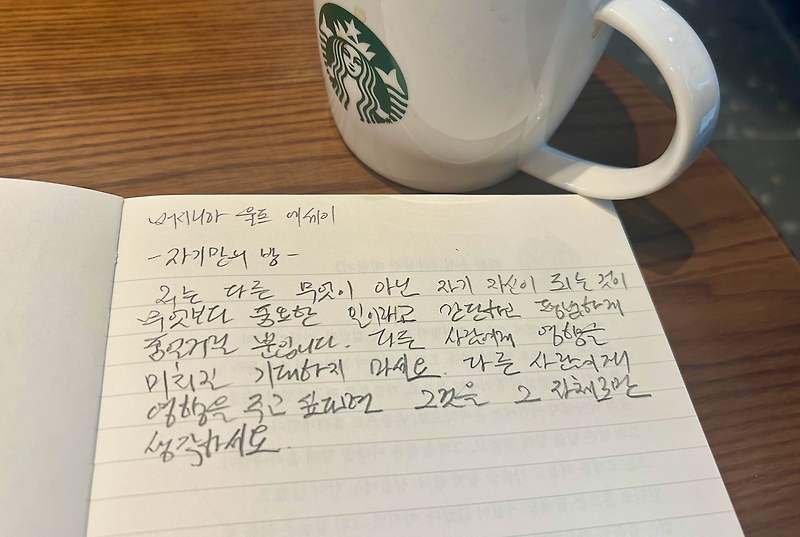 버지니아 울프 에세이
-자기만의 방-
저는 다른 무엇이 아닌 자기 자신이 되는 것이
무엇보다 중요한 일이라고 간단하고 평범하게
중얼거릴 뿐입니다. 다른 사람에게 영향을
미치길 기대하지 마세요. 다른 사람에게
영향을 주고 싶다면 그것을 그 자체로만
생각하세요.